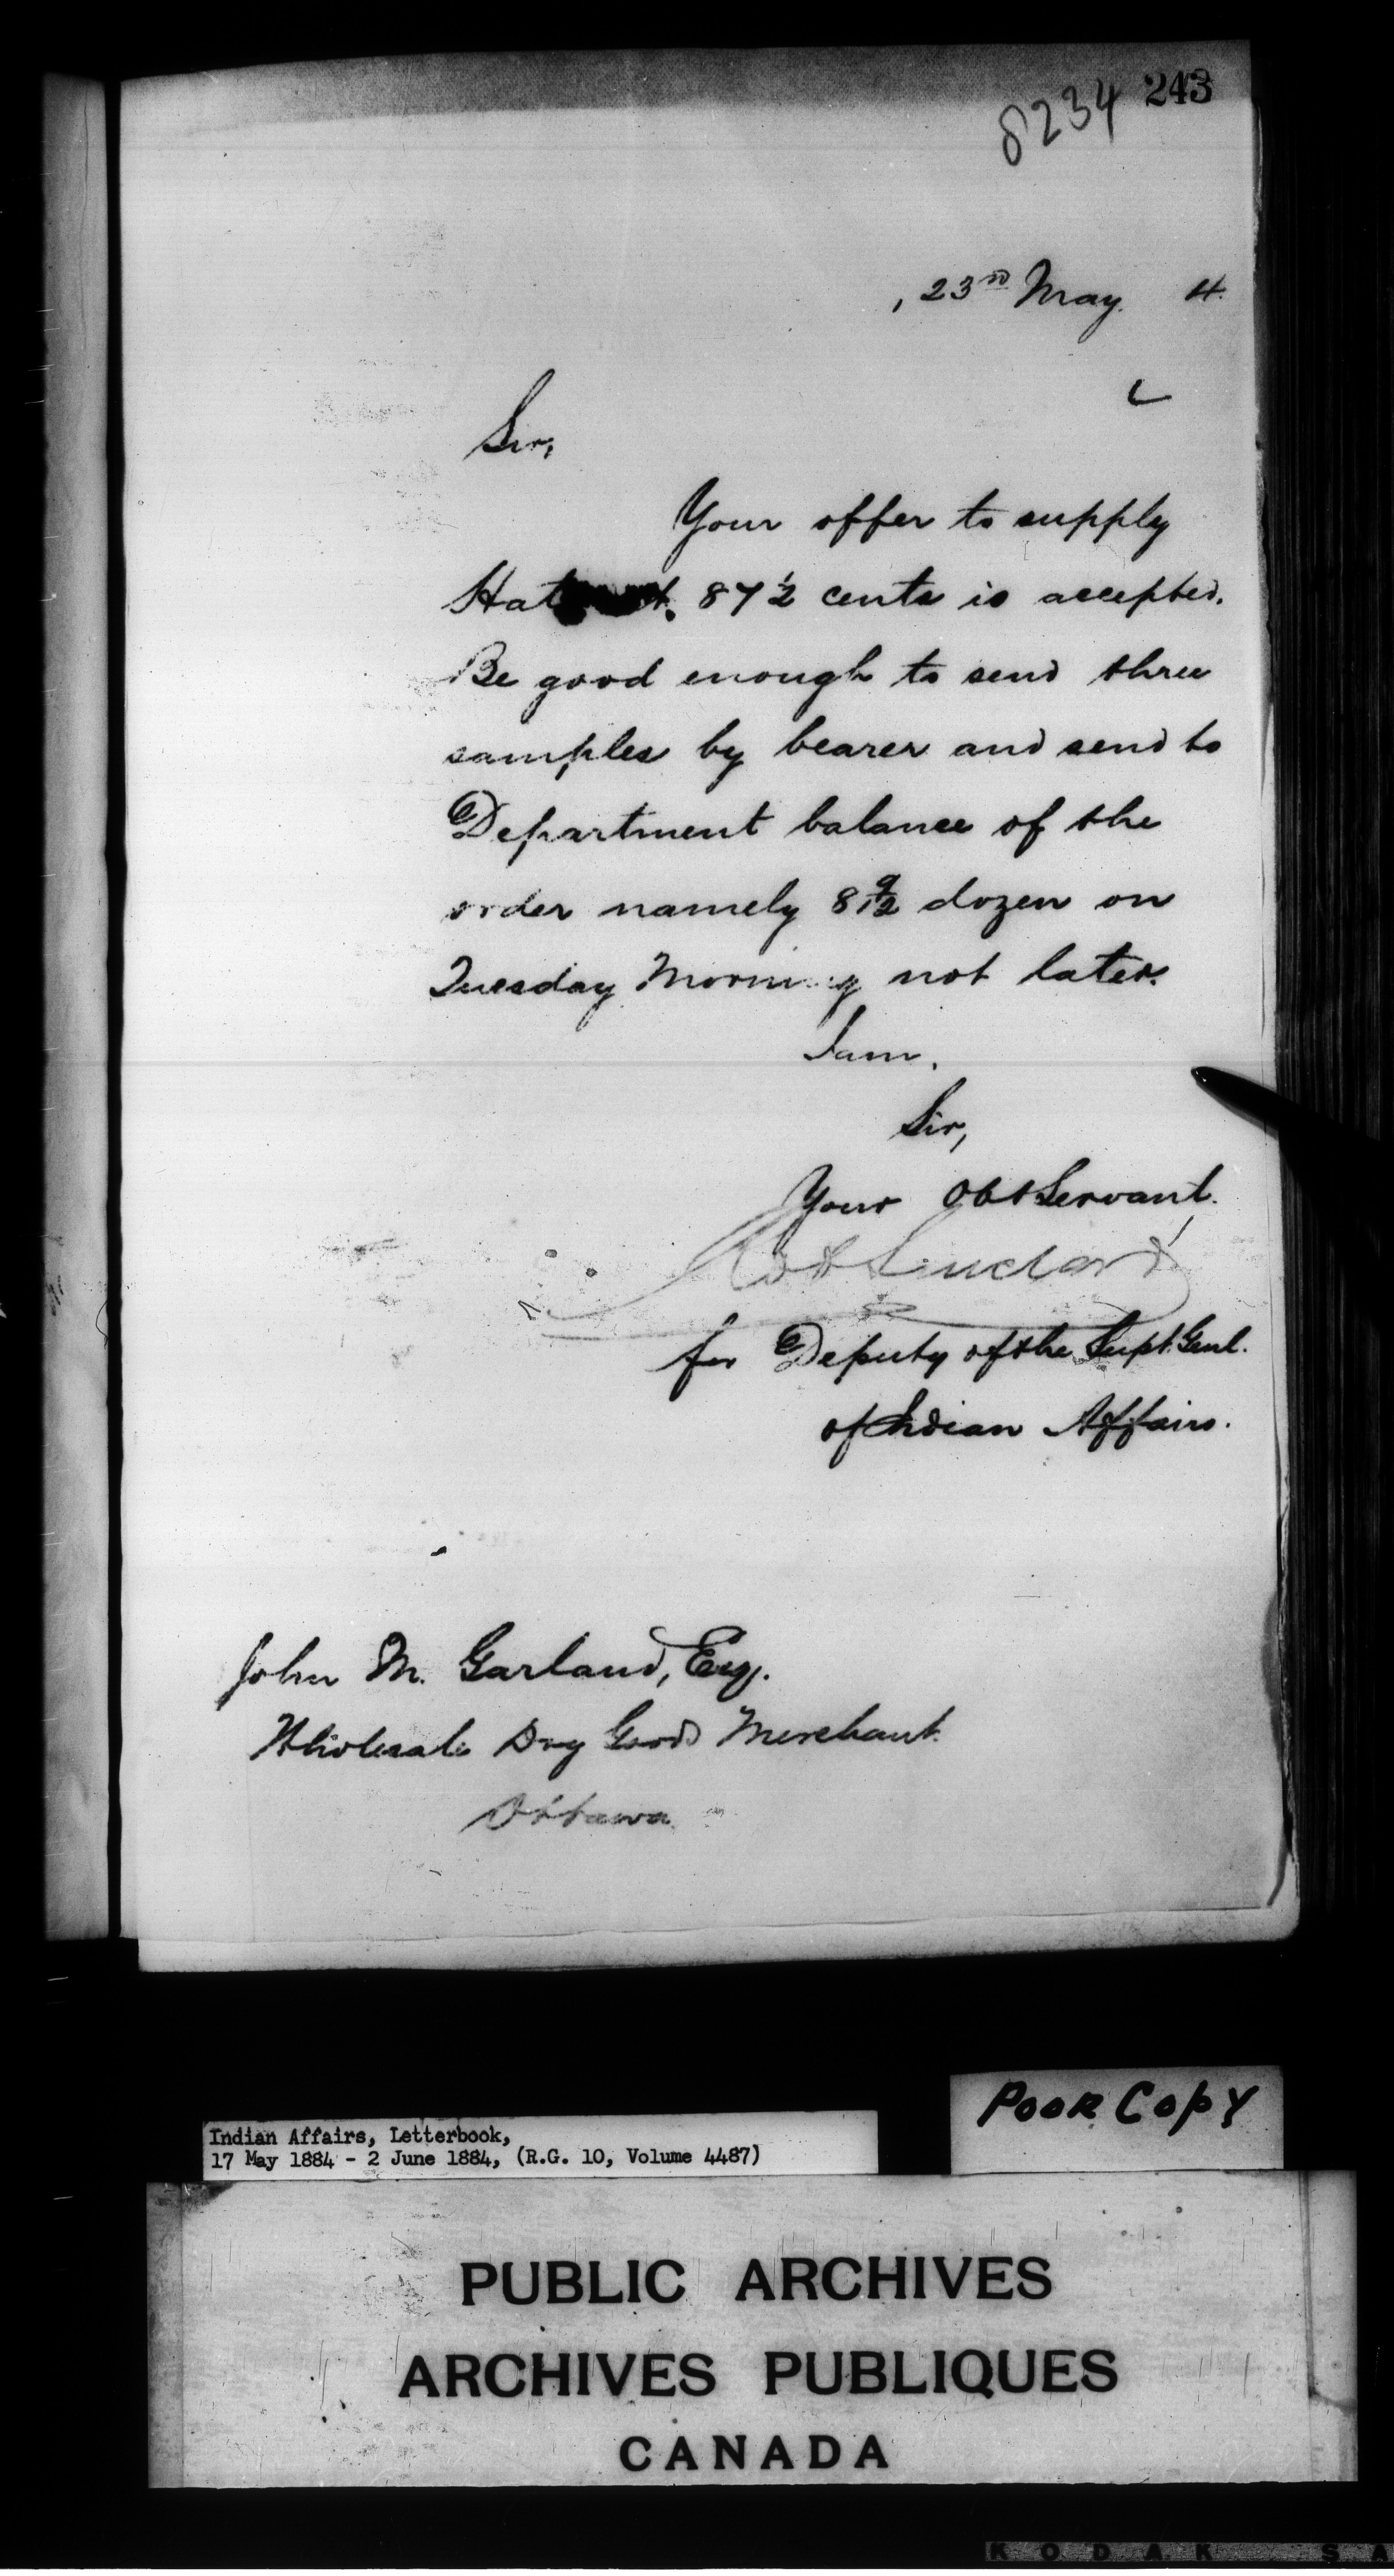 243
8234
, 23rd May. 4.
Sir,
Your offer to supply
Hat 87 1/2 cents is accepted.
Be good enough to send three
samples by bearer and send to
Department balance of the
order namely 8 9/12 dozen on
Tuesday Morning not later.
I am,
Sir,
Your Obt Servant.
Robt Sinclair
for Deputy of the Supt. Genl.
of Indian Affairs.
John M. Garland, Esq.
Wholesale Dry Goods Merchant
Ottawa
POOR COPY
Indian Affairs, Letterbook,
17 May 1884 - 2 June 1884, (R.G. 10, Volume 4487)
PUBLIC ARCHIVES
ARCHIVES PUBLIQUES
CANADA
KODAK SA